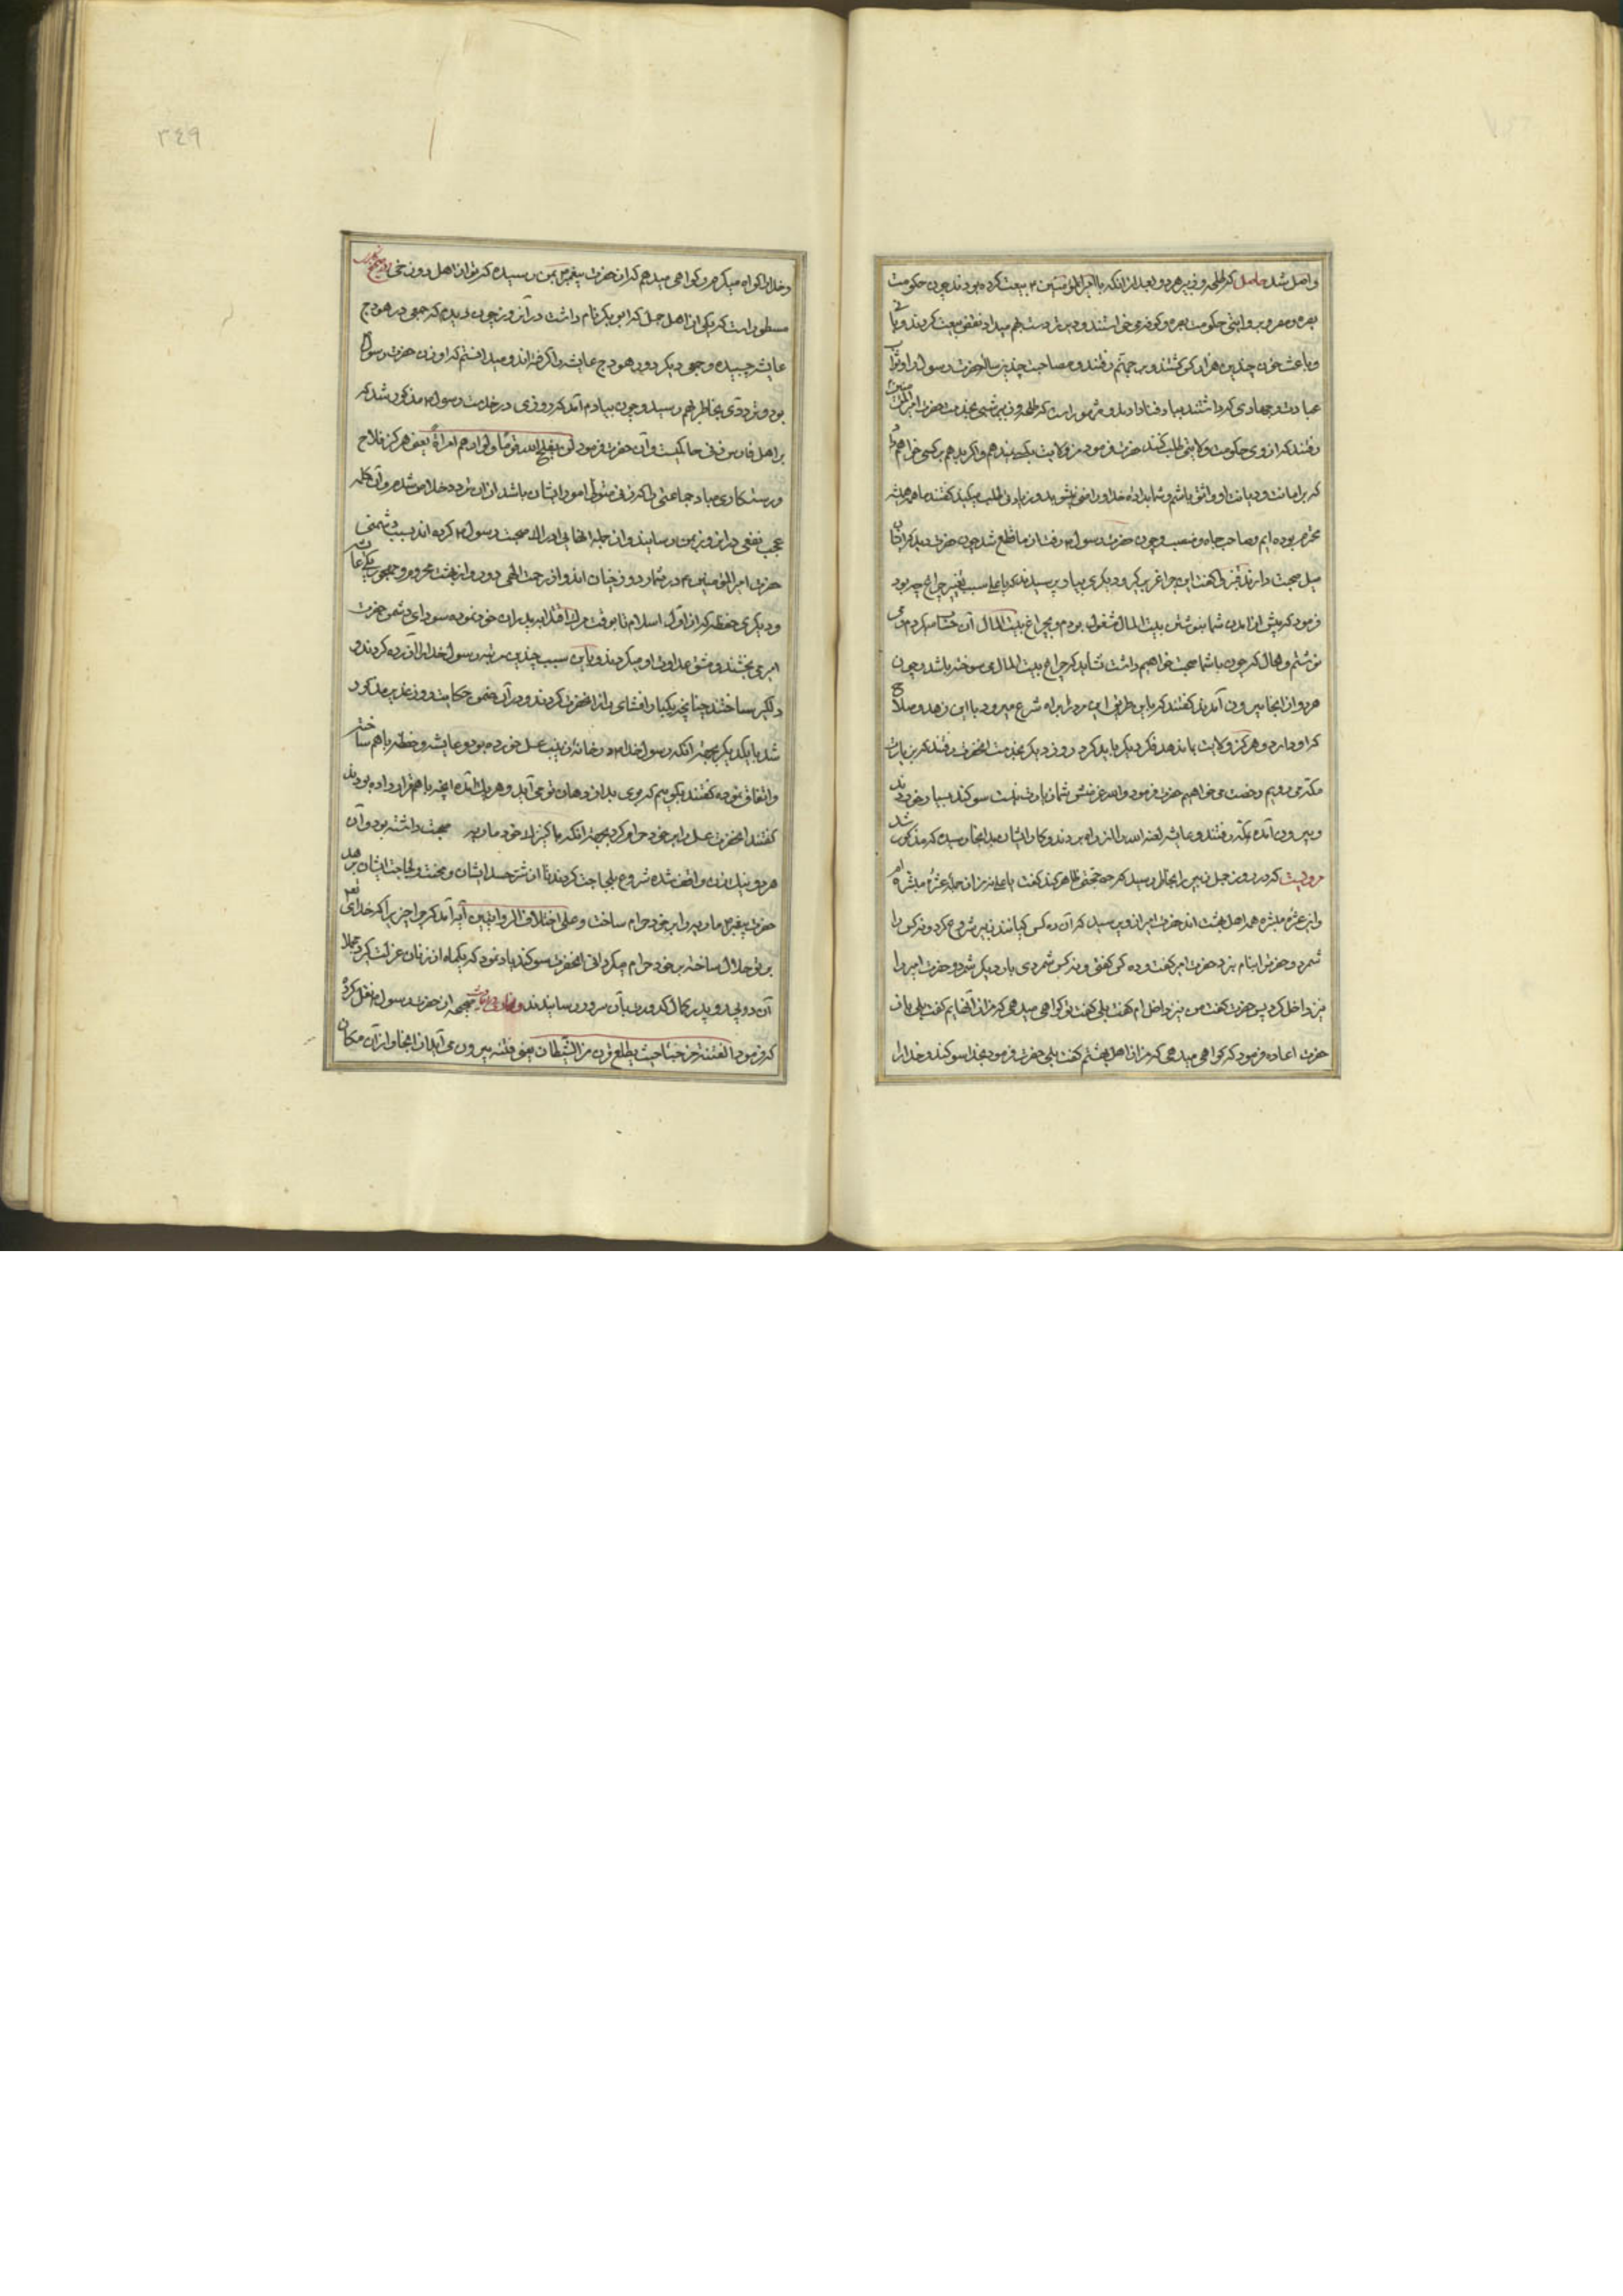 واصل شد حاصل که طلحه و زبیر هر دو بعد از آنکه با امیرالمؤمنین بیعت کرده بودند چون حکومت
بصره و مصر و بروایتی حکومت بصره و کوفه می خواستند و دست بهم نمیداد نقض بیعت کردند و باعث
و باعث خون چندین هزار کس گشتند و بجهنم رفتند و مصاحبت چندین ساله حضرت رسول و ثواب
عبادت و جهادی که داشتند بباد فنا دادند و مشهور است که طلحه و زبیر شبی بخدمت حضرت امیرالمؤمنین
رفتند که از وی حکومت و ولایتی طلب کنند حضرت فرمود من ولایت بکسی ندهم و اگر بدهم بکسی خواهم داد
که بر امانت و دیانت او واثق باشم و شما بداده خدا راضی نشوید و زیادتی طلب میکنید گفتند ما همیشه
محترم بوده ایم و صاحب جاه و منصب و چون حضرت رسول رفت از ما قطع شد چون حضرت دید که ایشان
میل صحبت دارند قنبر را گفت این چراغ بر گیر و دیگری بیاور پرسیدند که یا علی سبب تغییر چراغ چه بود
فرمود که پیش از آمدن شما بنوشتن بیت المال مشغول بودم و بچراغ بیت المال آن حساب میکردم و می
نوشتم و حال که چون با شما صحبت خواهیم داشت نشاید که چراغ بیت المال می سوخته باشد و چون
هر دو از آنجا بیرون آمدند گفتند که باین طریق این مرد براه شرع میرود با این زهد و صلاح
که او دارد هرگز ولایت بما ندهد فکر دیگر باید کرد روز دیگر بخدمت آنحضرت رفتند که بزیارت
مکه می رویم رخصت می خواهیم حضرت فرمود والله غرض شما زیارت نیست سوگند بسیار خوردند
و بیرون آمده بمکه رفتند و عایشه لعنه الله را از راه بردند و کار ایشان بدانجا رسید که مذکور شد
مرویست که در روز جمل زبیر را بخاطر رسید که حجتی ظاهر کند گفت یا علی من از جمله عشره مبشره ام
و این عشره مبشره همه اهل بهشت اند حضرت امیر از وی پرسید که آن ده کس کیانند زبیر شروع کرد و نه کس را
شمرد و حضرت را نام نبرد حضرت امیر گفت ده کس گفتی و نه کس شمردی بار دیگر شمرد و حضرت امیر را
نیز داخل کرد پس حضرت گفت من نیز داخل ام گفت بلی گفت تو گواهی میدهی که من از آنهایم گفت بلی باز
حضرت اعاده فرمود که گواهی میدهی که من از اهل بهشتم گفت بلی حضرت فرمود بخدا سوگند و خدا را
و خدا را گواه میگیرم و گواهی میدهم که از حضرت پیغمبر بمن رسیده که تو از اهل دوزخی
مسطور است که یکی از اهل جمل که ابوبکر نام داشت در آن روز چون دیدم که جمعی در هودج
عایشه چسبیده و جمعی دیگر دور هودج عایشه را گرفته اند و میدانستم که او زن حضرت رسول
بود و ترددی بخاطرم رسید و چون بیادم آمد که روزی در خدمت رسول مذکور شد که
بر اهل فارس زنی حاکمیست و آن حضرت فرمود لن یفلح الله قوما ولوا امرهم امرأة یعنی هرگز فلاح
و رستگاری مباد جماعتی را که زنی متولی امور ایشان باشد از آن تردد خلاص شدم و آن کلمه
عجب نفعی در آن روز بمن رسانید و از جمله آنهایی که ادراک صحبت رسول کرده اند بسبب دشمنی
حضرت امیرالمؤمنین در شمار دوزخیان اند و از رحمت الهی دور و از بهشت محروم و مهجور یکی عایشه
و دیگری حفصه که از اول اسلام تا بوقت مرگ اقتدا بپدران خود نموده سودای دشمنی حضرت
امیر می پختند و مشق عداوت او میکردند و باین سبب چندین مرتبه رسول خدا را آزرده کردند و
دلگیر ساختند چنانچه یکبار افشای راز آنحضرت کردند و در آن ضمن حکایت روز غدیر مذکور
شد با یکدیگر بجهة آنکه رسول خدا در خانه زینب عسل خورده بود و عایشه و حفصه با هم ساخته
و اتفاق نموده گفتند بگوییم که بوی بد از دهان تو می آید و هر یک آمده آنچه با هم قرار داده بودند
گفتند آنحضرت عسل را بر خود حرام کرد بجهة آنکه با کنیزک خود ماریه صحبت داشته بود و آن
هر دو زن از آن واقف شده شروع بلجاجت کردند تا از شر حسد ایشان و محنت و لجاجت ایشان برهد
حضرت پیغمبر ماریه را بر خود حرام ساخت و علی اختلاف الروایتین آیه آمد که چرا چیزی را که خدای تعالی
بر تو حلال ساخته بر خود حرام میگردانی آنحضرت سوگند یاد نمود که یکماه از زنان عزلت گیرد مجملا
آن دو بی پدر کمال کدورت بآن سرور رسانیدند و بخاری در صحیحه از حضرت رسول نقل کرده
که فرمود الفتنة تخرج من هاهنا حیث یطلع قرن من الشیطان یعنی فتنه بیرون می آید از اینجا و از آن مکان
٣٤٩